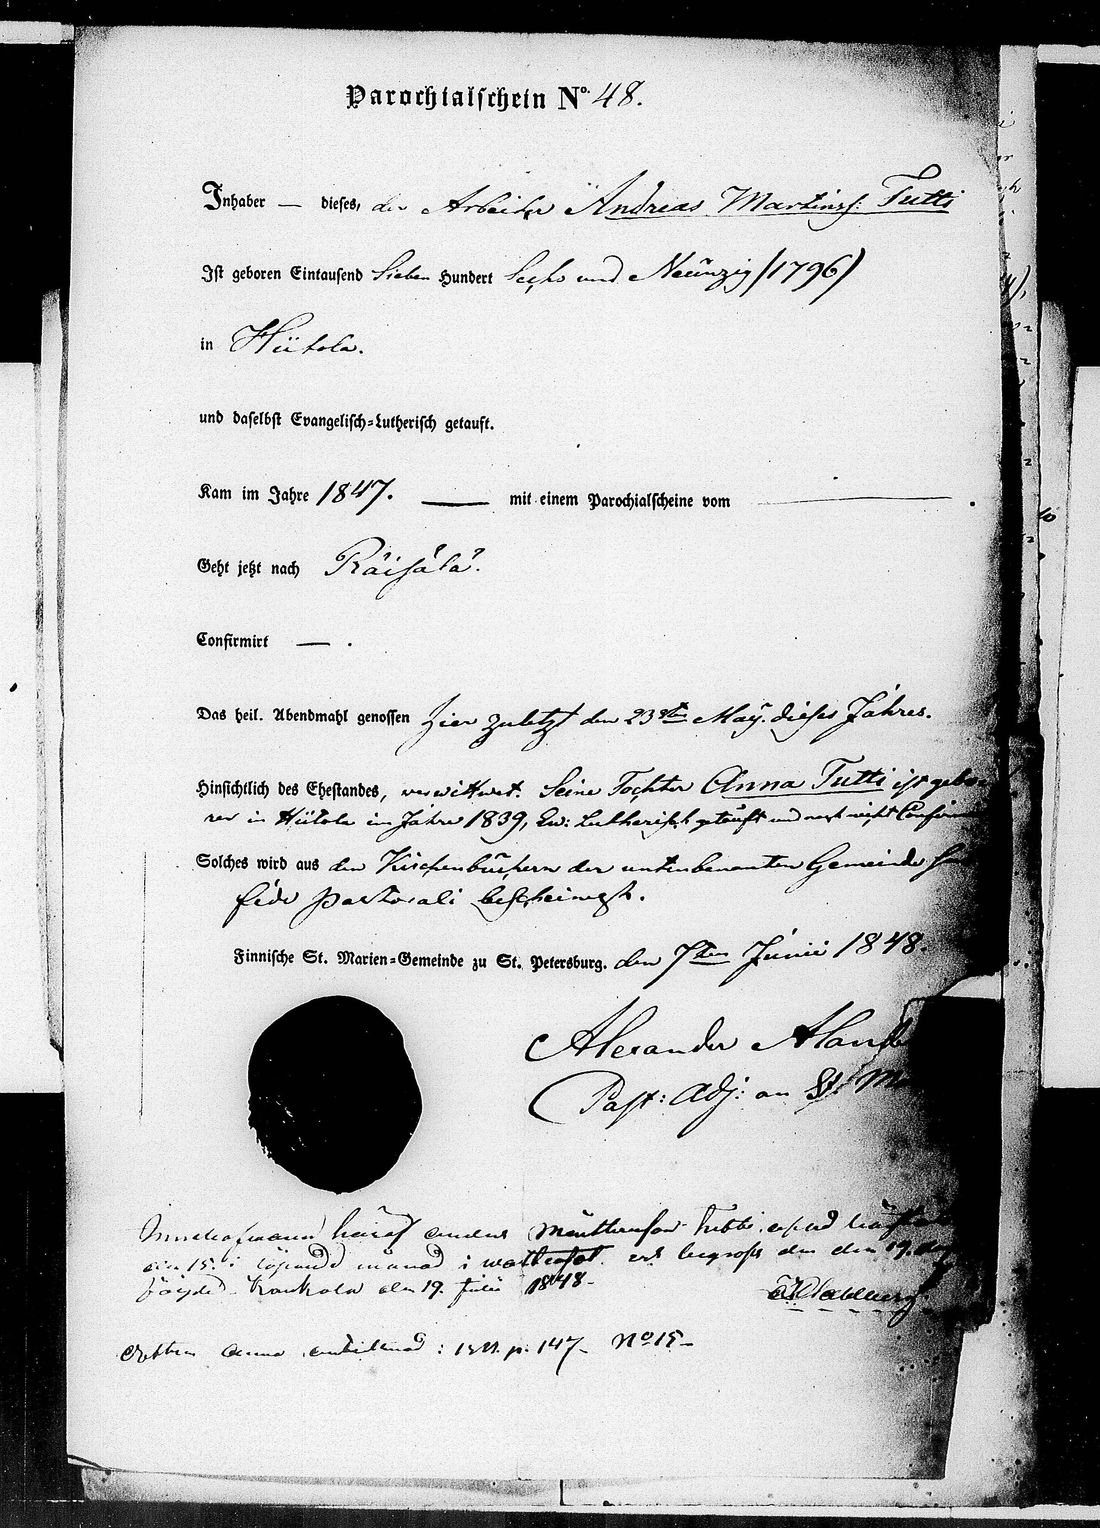 Parochialschein No. 48.
Inhaber — dieses, der Arbeiter Andreas Martinsf: Tutti
Ist geboren Eintausend Sieben Hundert Sechs und Neünzig (1796)
in Hiitola.
und daselbst Evangelisch-Lutherisch getauft.
Kam im Jahre 1847. — mit einem Parochialscheine vom — .
Geht jetzt nach Räisälä.
Confirmirt — .
Das heil. Abendmahl genossen hier zuletzt den 23sten May. dieses Jahres.
Hinsichtlich des Ehestandes, verwittwet. Seine Tochter Anna Tutti ist gebo
ren in Hiitola im Jahre 1839, Ev: Lutherisch getauft und noch nicht Confirm
Solches wird aus den Kirchenbüchern der untenbenannten Gemeinde
fide pastorali bescheinigt.
Finnische St. Marien-Gemeinde zu St. Petersburg. den 7ten Junii 1848.
Alexander Aland
Past: Adj: an St. Ma
den 15. i löpande månad i den 19.
Kaukola den 19. Julii 1848
Dottren Anna antecknad: p. 147 No 15